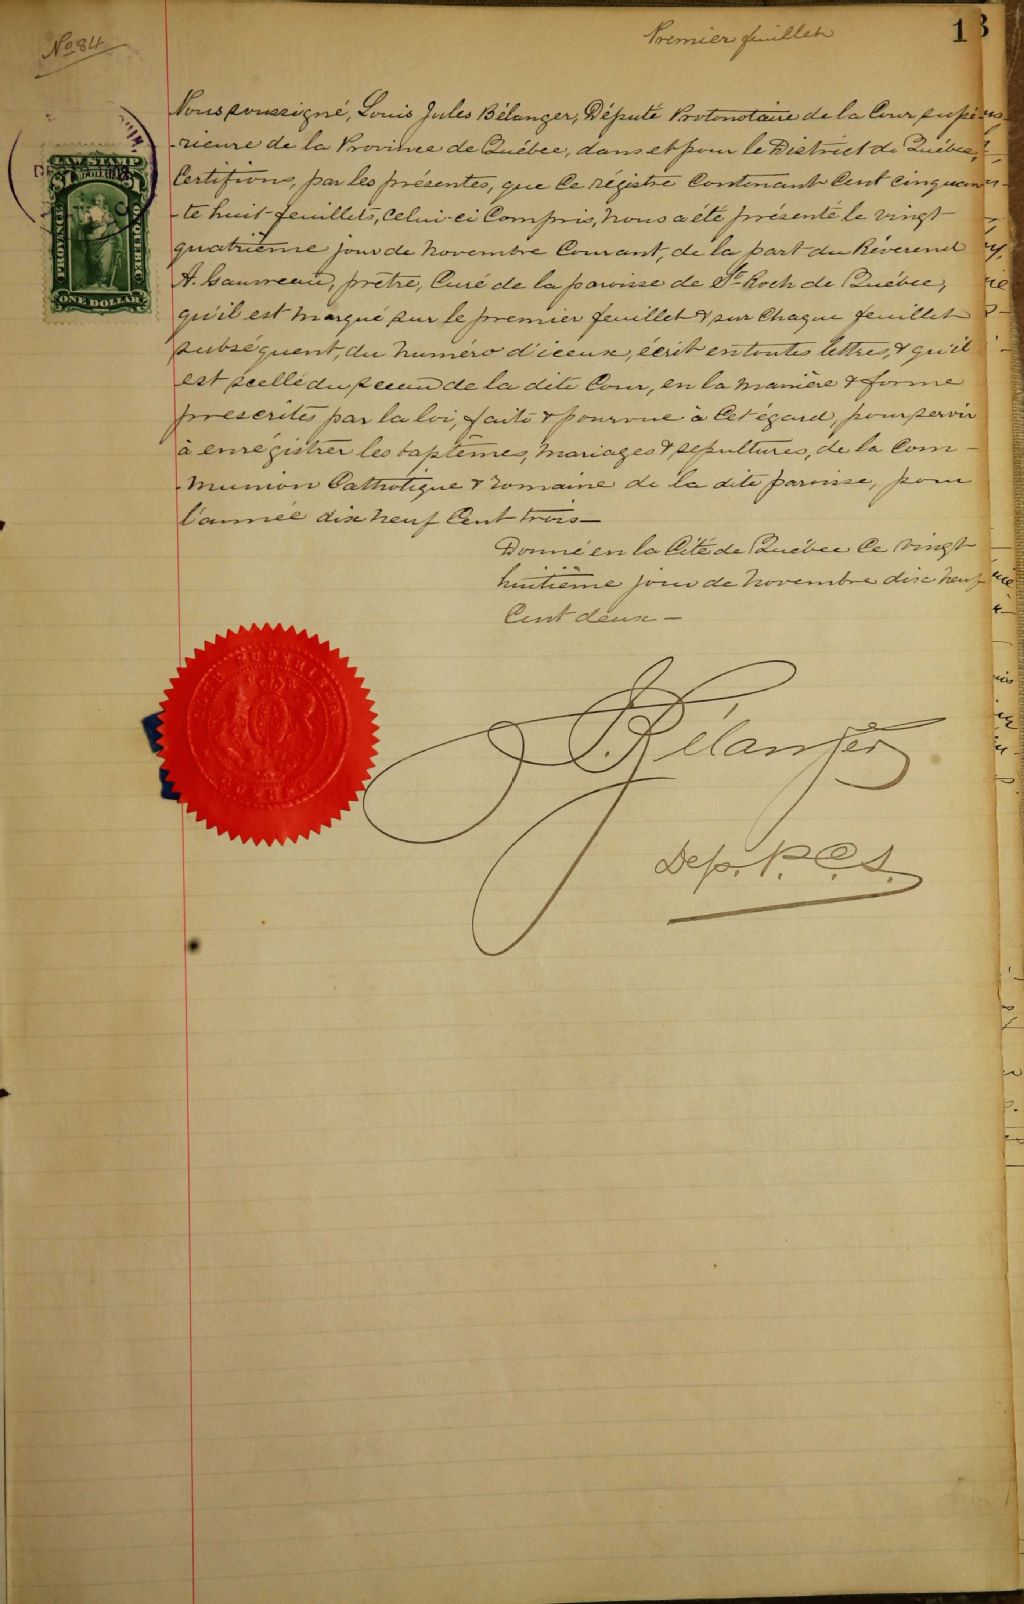 No 84
Premier feuillet
1
3
Nous soussigné, Louis Jules Bélanger, Député Protonotaire de la Cour supé
-rieure de la Province de Québec, dans et pour le District de Québec,
Certifions, par les présentes, que ce régistre contenant cent cinquan
-te huit feuillets, celui-ci compris, nous a été présenté le vingt
quatrième jour de novembre courant, de la part du Réverend
A. Gauvreau, prêtre, Curé de la paroisse de St-Roch de Québec,
qu'il est marqué sur le premier feuillet & sur chaque feuillet
subséquent, du numéro d'iceux, écrit en toutes lettres, & qu'il
est scellé du sceau de la dite Cour, en la manière & forme
prescrites par la loi, faite & pourvue à cet égard, pour servir
à enrégistrer les baptêmes, mariages & sépultures, de la Com-
-munion Catholique & romaine de la dite paroisse, pour
l'année dix neuf cent trois-
Donné en la Cité de Québec ce vingt
huitième jour de novembre dix neuf
cent deux-
LAW STAMP
1 DOLLAR 1
PROVINCE
OF QUEBEC
ONE DOLLAR
L. J. Bélanger
Dep. P.C.S.